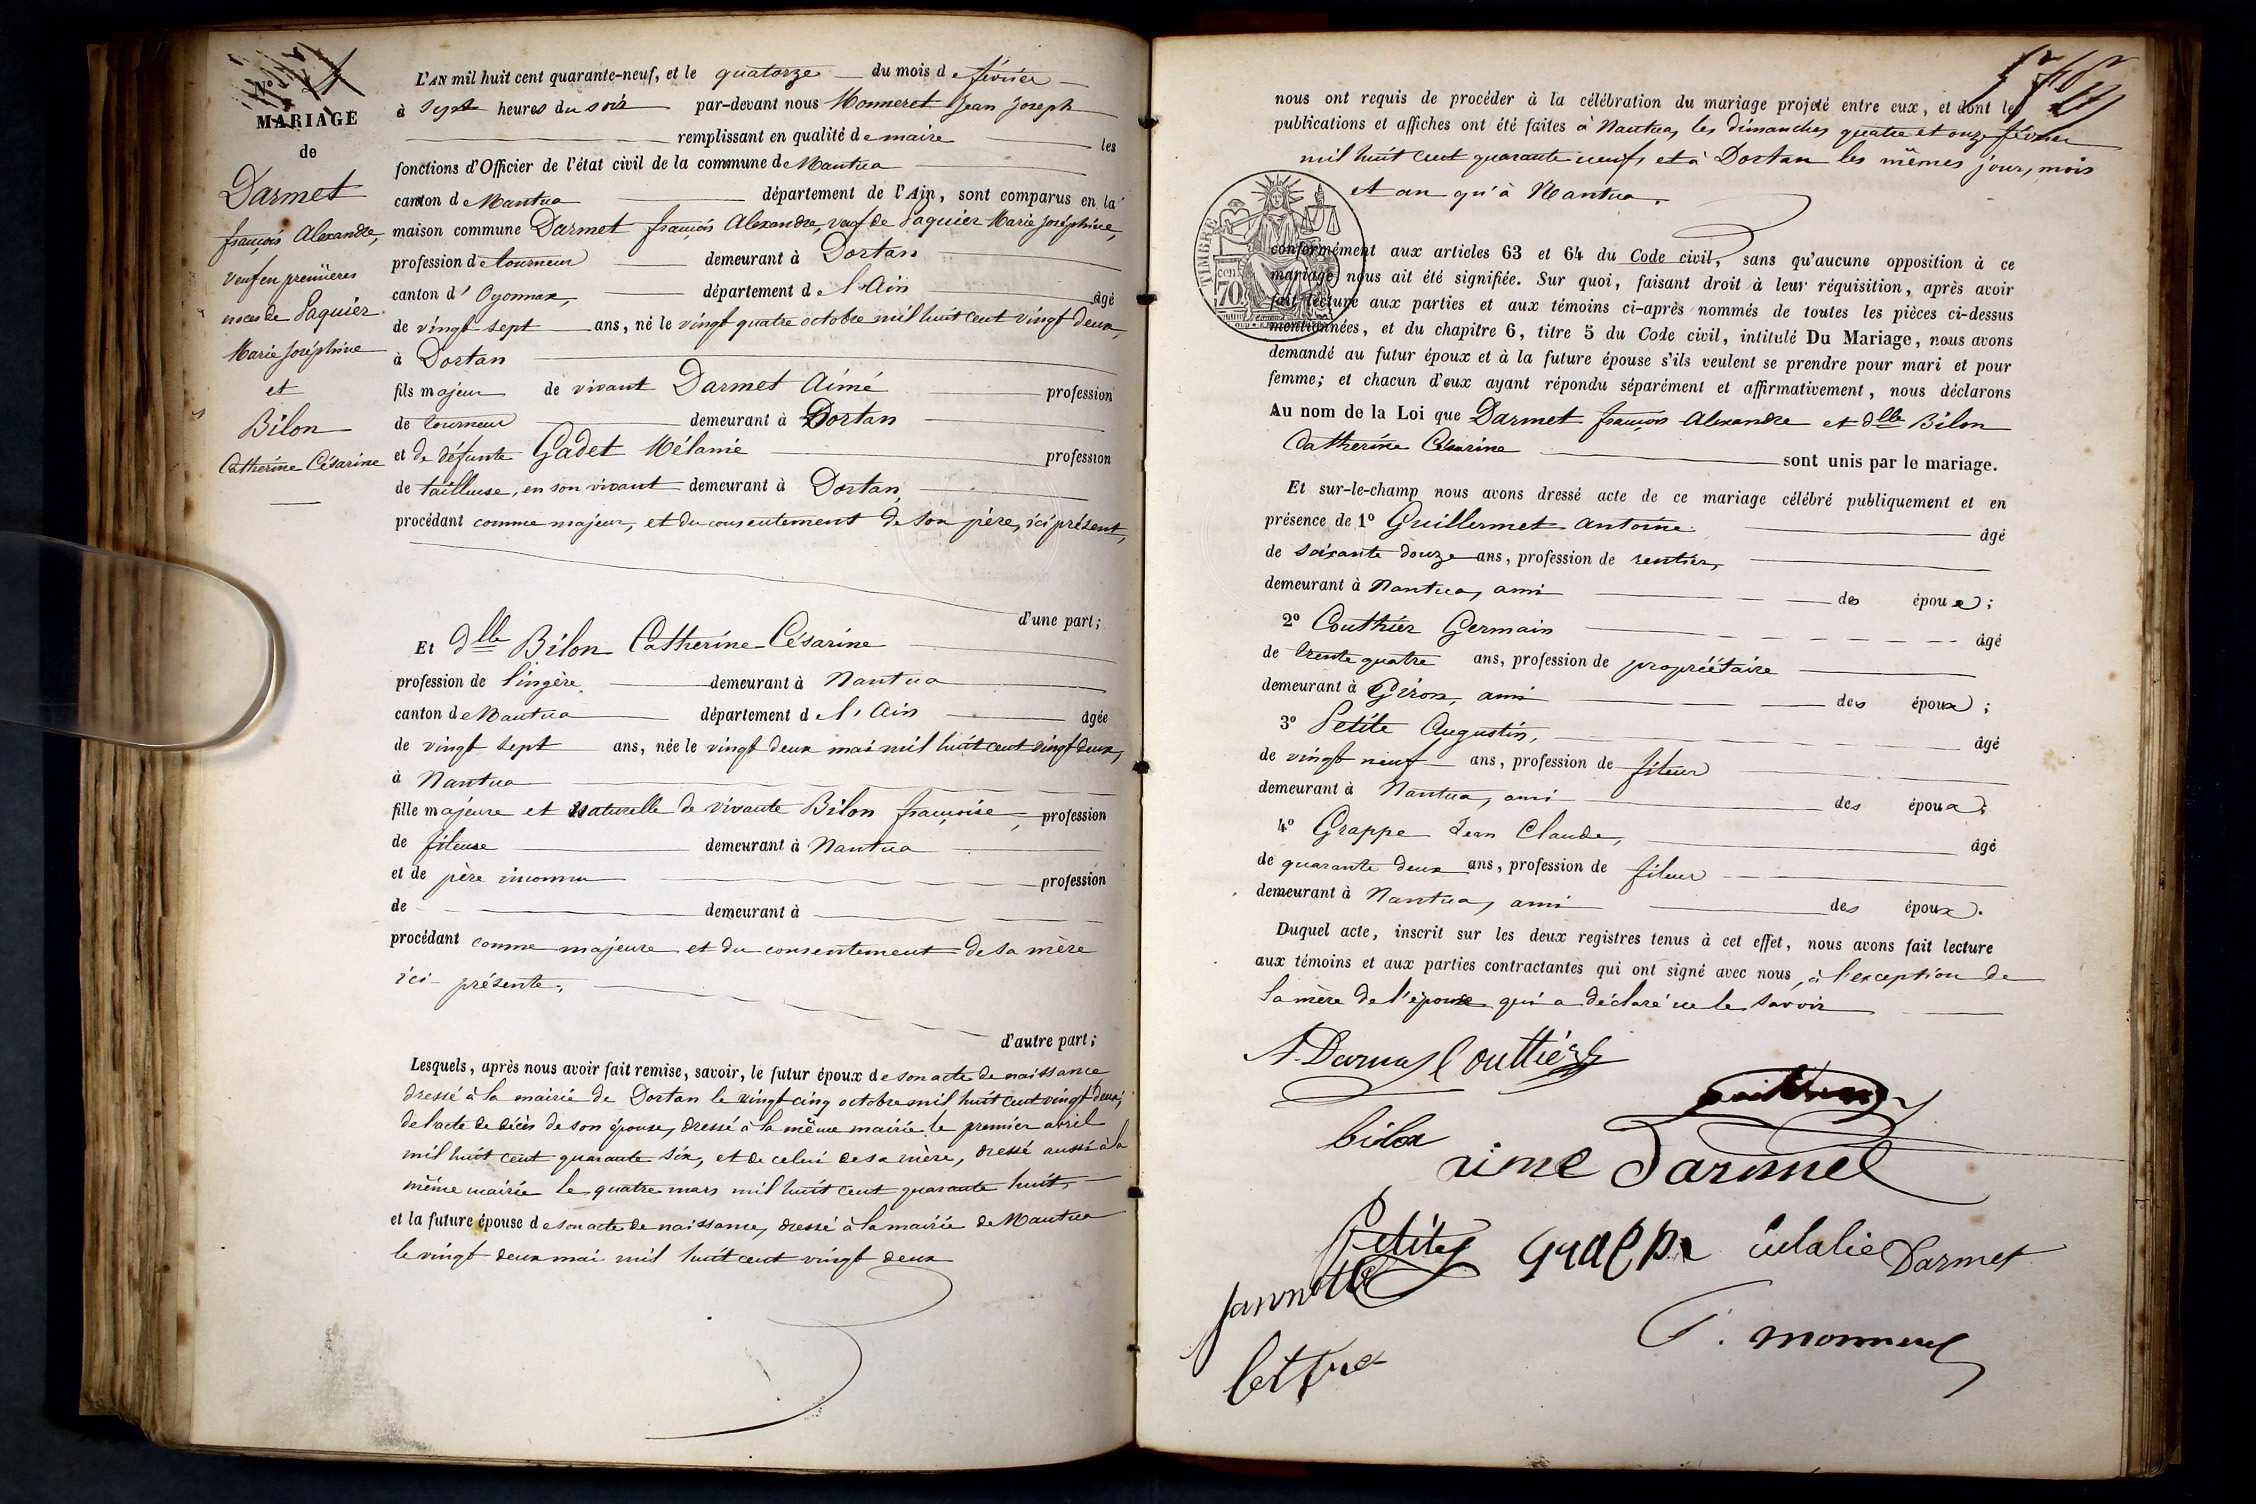 MARIAGE
de
Darmet
françois Alexandre,
veuf en premières
noces de Paquier
Marie Joséphine
et
Bilon
Catherine Césarine
L'AN mil huit cent quarante-neuf, et le quatorze du mois de février
à sept heures du soir par-devant nous Monneret Jean Joseph
remplissant en qualité de maire les
fonctions d'Officier de l'état civil de la commune de Nantua
canton de Nantua département de l'Ain, sont comparus en la
maison commune Darmet françois Alexandre, veuf de Paquier Marie Joséphine,
profession de tourneur demeurant à Dortan
canton d'Oyonnax, département de l'Ain âgé
de vingt sept ans, né le vingt quatre octobre mil huit cent vingt deux,
à Dortan
fils majeur de vivant Darmet Aimé profession
de tourneur demeurant à Dortan
et de défunte Gadet Mélanie profession
de tailleuse, en son vivant demeurant à Dortan,
procédant comme majeur, et du consentement de son père, ici présent,
d'une part;
Et dlle Bilon Catherine Césarine
profession de lingère demeurant à Nantua
canton de Nantua département de l'Ain âgée
de vingt sept ans, née le vingt deux mai mil huit cent vingt deux,
à Nantua
fille majeure et naturelle de vivante Bilon françoise, profession
de fileuse demeurant à Nantua
et de père inconnu profession
de demeurant à
procédant comme majeure et du consentement de sa mère
ici présente,
d'autre part;
Lesquels, après nous avoir fait remise, savoir, le futur époux de son acte de naissance
dressé à la mairie de Dortan le vingt cinq octobre mil huit cent vingt deux,
de l'acte de décès de son épouse, dressé à la même mairie le premier avril
mil huit cent quarante six, et de celui de sa mère, dressé aussi à la
même mairie le quatre mars mil huit cent quarante huit,
et la future épouse de son acte de naissance, dressé à la mairie de Nantua
le vingt deux mai mil huit cent vingt deux
nous ont requis de procéder à la célébration du mariage projeté entre eux, et dont les
publications et affiches ont été faites à Nantua, les dimanches quatre et onze février
mil huit cent quarante neuf, et à Dortan les mêmes jour, mois
et an qu'à Nantua.
TIMBRE
70
conformément aux articles 63 et 64 du Code civil, sans qu'aucune opposition à ce
mariage nous ait été signifiée. Sur quoi, faisant droit à leur réquisition, après avoir
fait lecture aux parties et aux témoins ci-après nommés de toutes les pièces ci-dessus
mentionnées, et du chapitre 6, titre 5 du Code civil, intitulé Du Mariage, nous avons
demandé au futur époux et à la future épouse s'ils veulent se prendre pour mari et pour
femme; et chacun d'eux ayant répondu séparément et affirmativement, nous déclarons
Au nom de la Loi que Darmet françois Alexandre et dlle Bilon
Catherine Césarine sont unis par le mariage.
Et sur-le-champ nous avons dressé acte de ce mariage célébré publiquement et en
présence de 1º Guillermet Antoine âgé
de soixante douze ans, profession de rentier,
demeurant à Nantua, ami des époux;
2º Couthier Germain âgé
de trente quatre ans, profession de propriétaire
demeurant à Giron, ami des époux;
3º Petite Augustin, âgé
de vingt neuf ans, profession de fileur
demeurant à Nantua, ami des époux;
4º Grappe Jean Claude, âgé
de quarante deux ans, profession de fileur
demeurant à Nantua, ami des époux.
Duquel acte, inscrit sur les deux registres tenus à cet effet, nous avons fait lecture
aux témoins et aux parties contractantes qui ont signé avec nous, à l'exception de
la mère de l'épouse qui a déclaré ne le savoir
bilon
aimé Darmet
Petite Grappe Eulalie Darmet